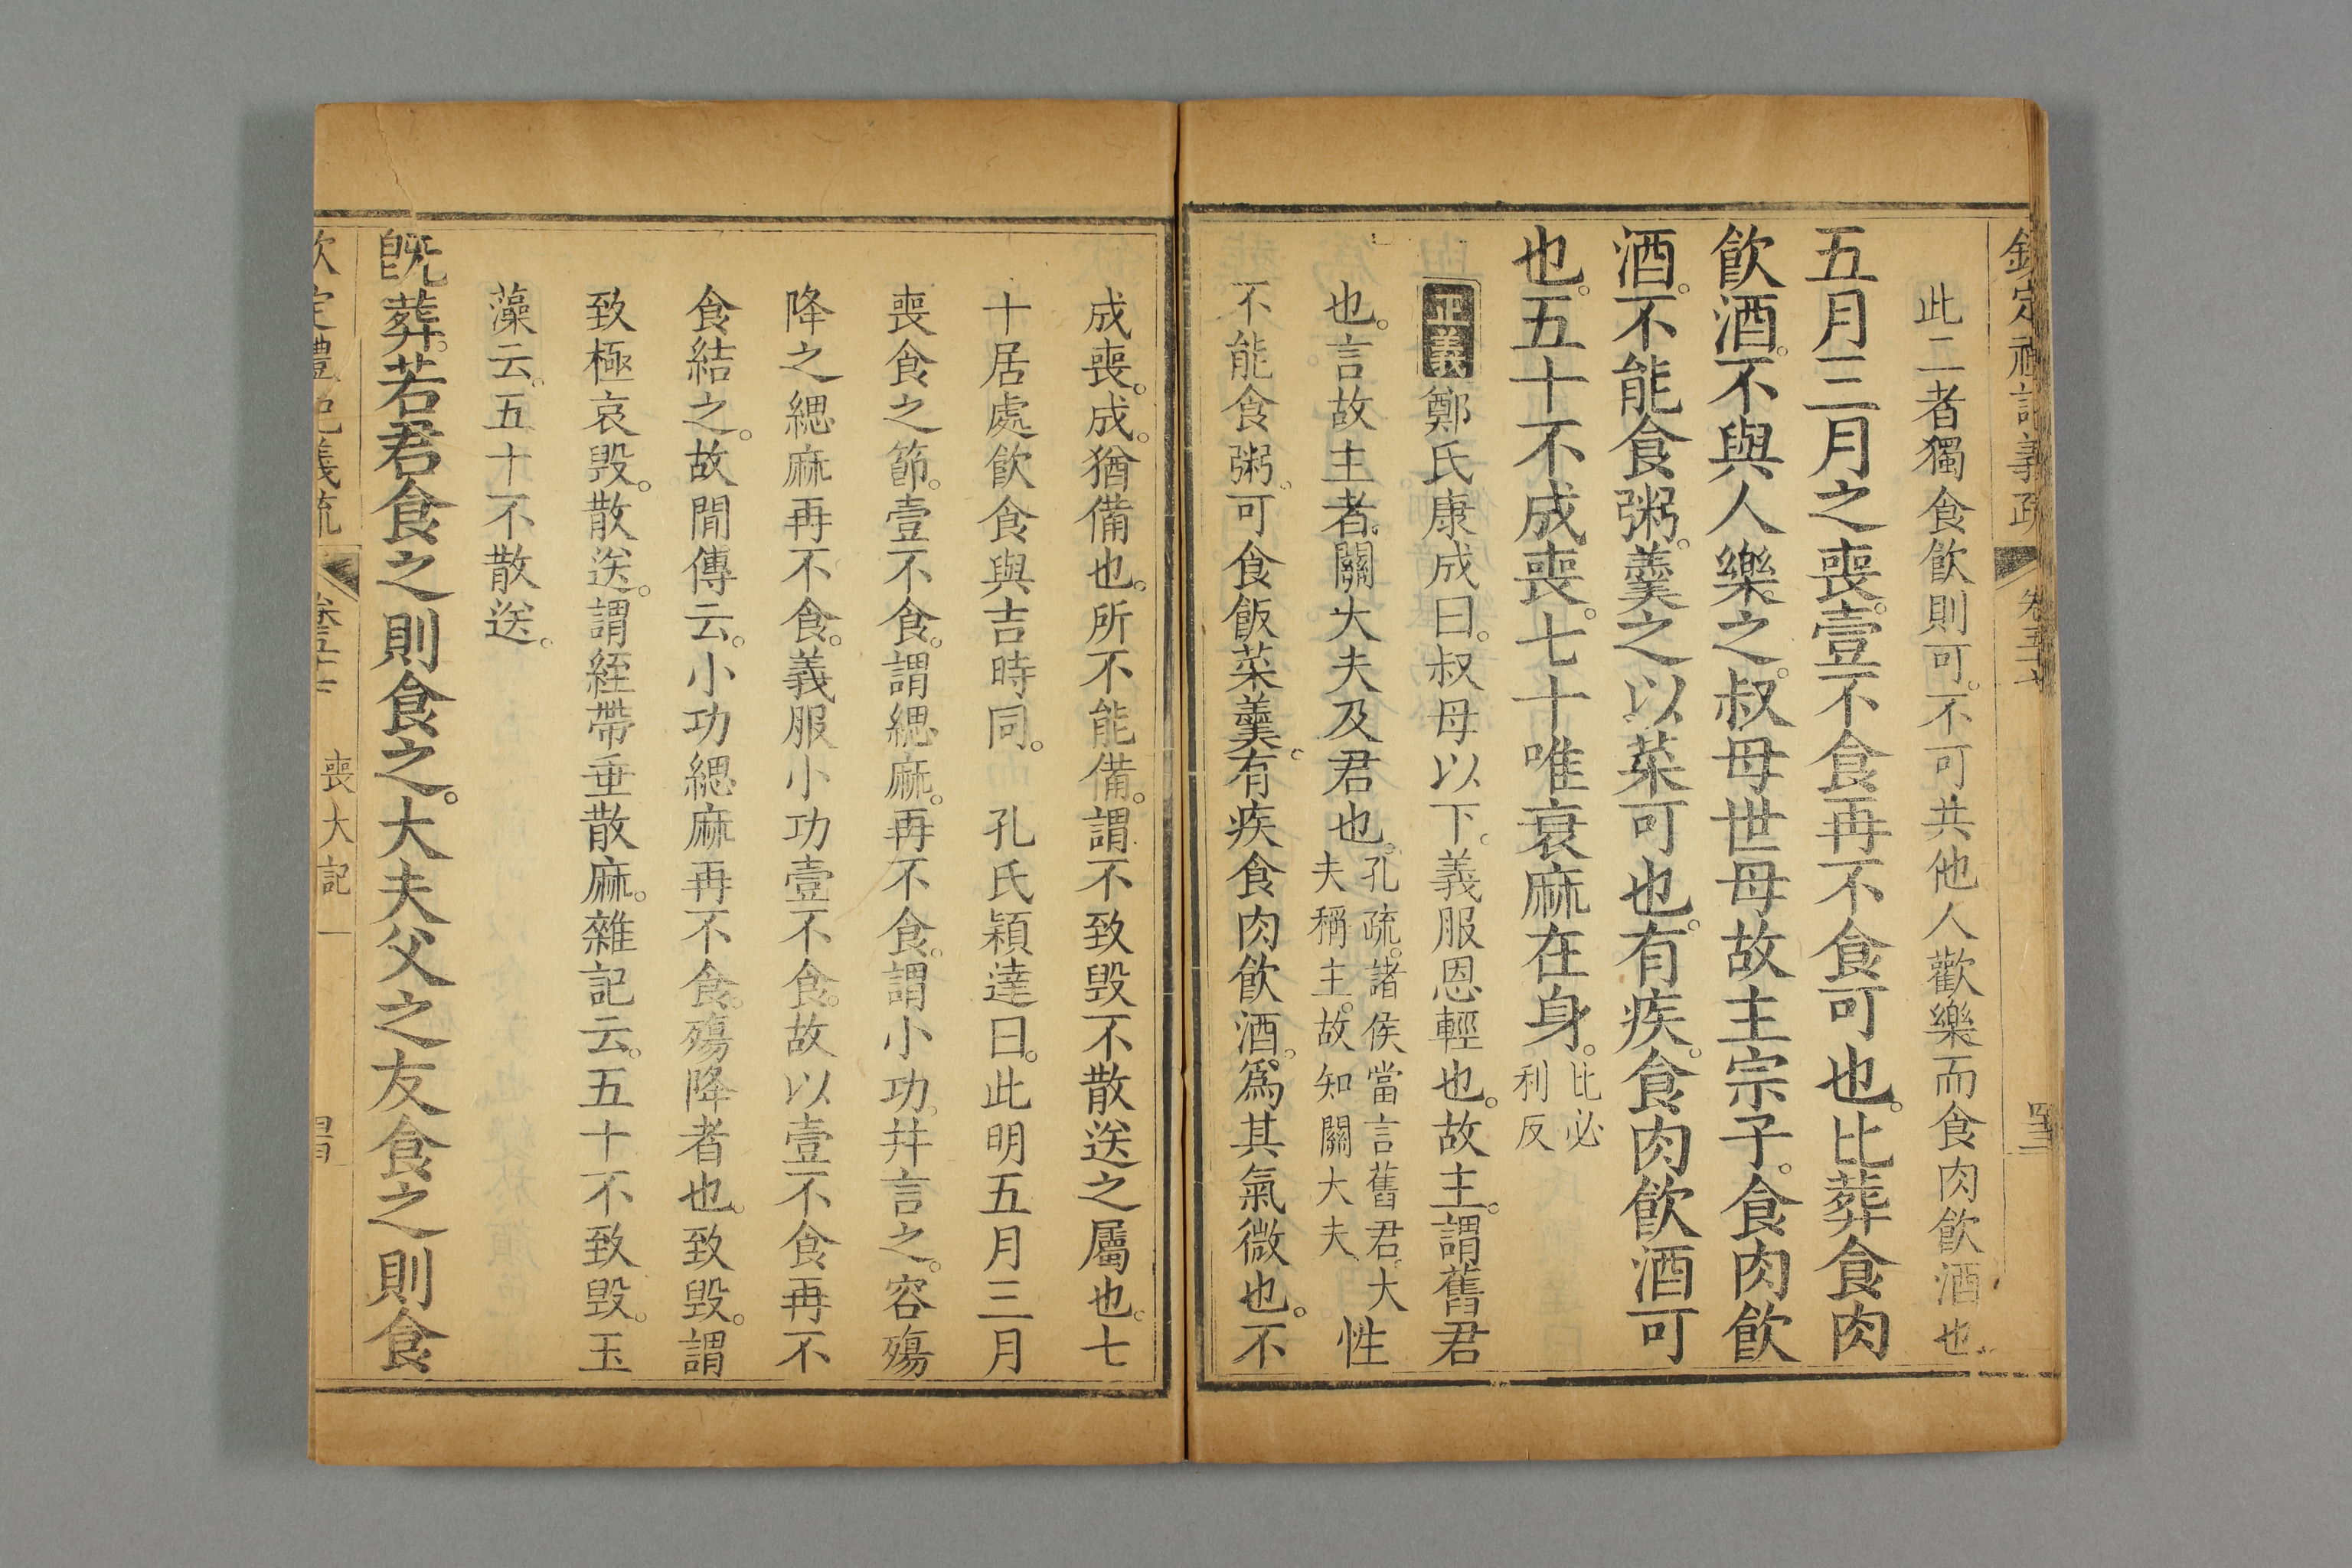 欽定禮記義疏 卷五十七 四十三
此二者獨食飲則可。不可共他人歡樂而食肉飲酒也。
五月三月之喪。壹不食再不食可也。比葬食肉
飲酒。不與人樂之。叔母世母故主宗子。食肉飲
酒。不能食粥。羹之以菜可也。有疾。食肉飲酒可
也。五十不成喪。七十唯衰麻在身。比必利反
正義鄭氏康成曰。叔母以下。義服恩輕也。故主。謂舊君
也。言故主者。關大夫及君也。孔疏。諸侯當言舊君。大夫稱主。故知關大夫 性
不能食粥。可食飯菜羹。有疾食肉飲酒。為其氣微也。不
成喪。成。猶備也。所不能備。謂不致毀不散送之屬也。七
十居處飲食與吉時同。 孔氏穎達曰。此明五月三月
喪食之節。壹不食。謂緦麻。再不食。謂小功。幷言之。容殤
降之緦麻再不食。義服小功壹不食。故以壹不食再不
食結之。故閒傳云。小功緦麻再不食。殤降者也。致毀。謂
致極哀毀。散送。謂絰帶垂散麻。雜記云。五十不致毀。玉
藻云。五十不散送。
旣葬。若君食之則食之。大夫父之友食之則食
欽定禮記義疏 喪大記一